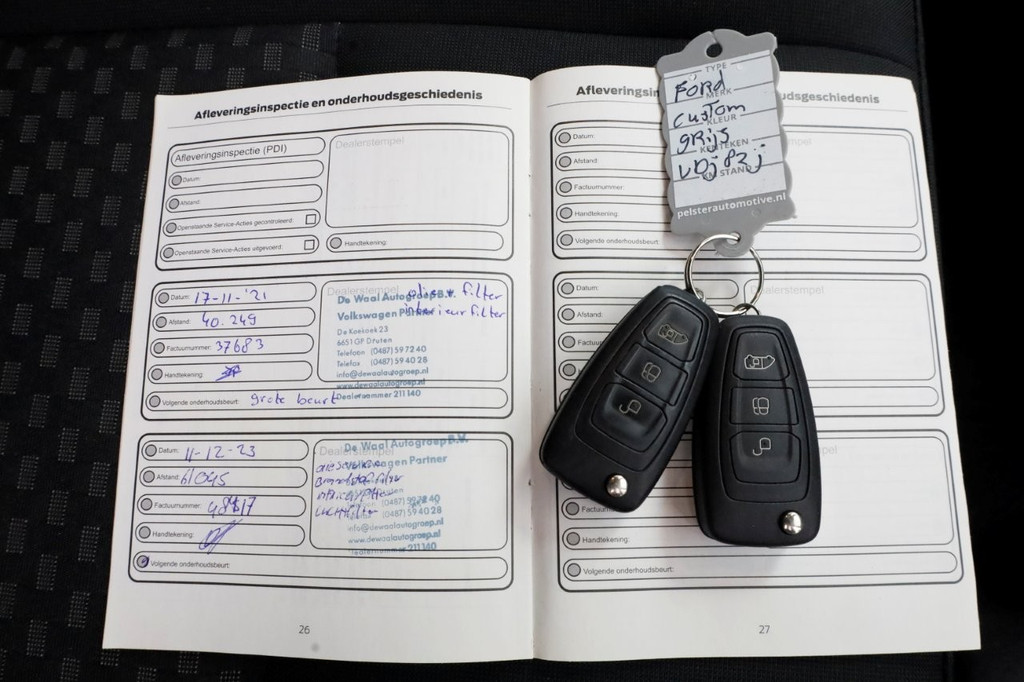 Afleveringsinspectie en onderhoudsgeschiedenis
Afleveringsinspectie (PDI)
Dealerstempel
Datum:
Afstand:
Openstaande Service-Acties gecontroleerd:
Openstaande Service-Acties uitgevoerd:
Handtekening:
Datum: 17-11-'21
Afstand: 40.249
Factuurnummer: 37683
Handtekening:
Volgende onderhoudsbeurt: grote beurt
Dealerstempel
De Waal Autogroep B.V.
Volkswagen Partner
De Koekoek 23
6651 GF Druten
Telefoon (0487) 59 72 40
Telefax (0487) 59 40 28
info@dewaalautogroep.nl
www.dewaalautogroep.nl
Dealernummer 211140
olie + filter
interieurfilter
Datum: 11-12-23
Afstand: 61045
Factuurnummer:
Handtekening:
Volgende onderhoudsbeurt:
De Waal Autogroep B.V.
Volkswagen Partner
(0487) 59 72 40
(0487) 59 40 28
info@dewaalautogroep.nl
www.dewaalautogroep.nl
Dealernummer 211140
26
Afleveringsin udsgeschiedenis
Datum:
Afstand:
Factuurnummer:
Handtekening:
Volgende onderhoudsbeurt:
Datum:
Afstand:
Factuu
Dealerstempel
Factuurn
Handtekening:
Volgende onderhoudsbeurt:
27
TYPE
Ford
MERK
Custom
KLEUR
grijs
KENTEKEN
VDJ82J
KM STAND
pelsterautomotive.nl